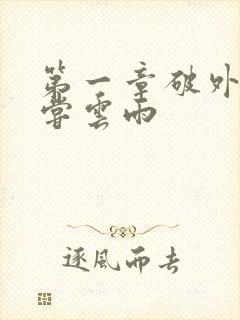 第一章破外
嘗雲雨
逐風而去